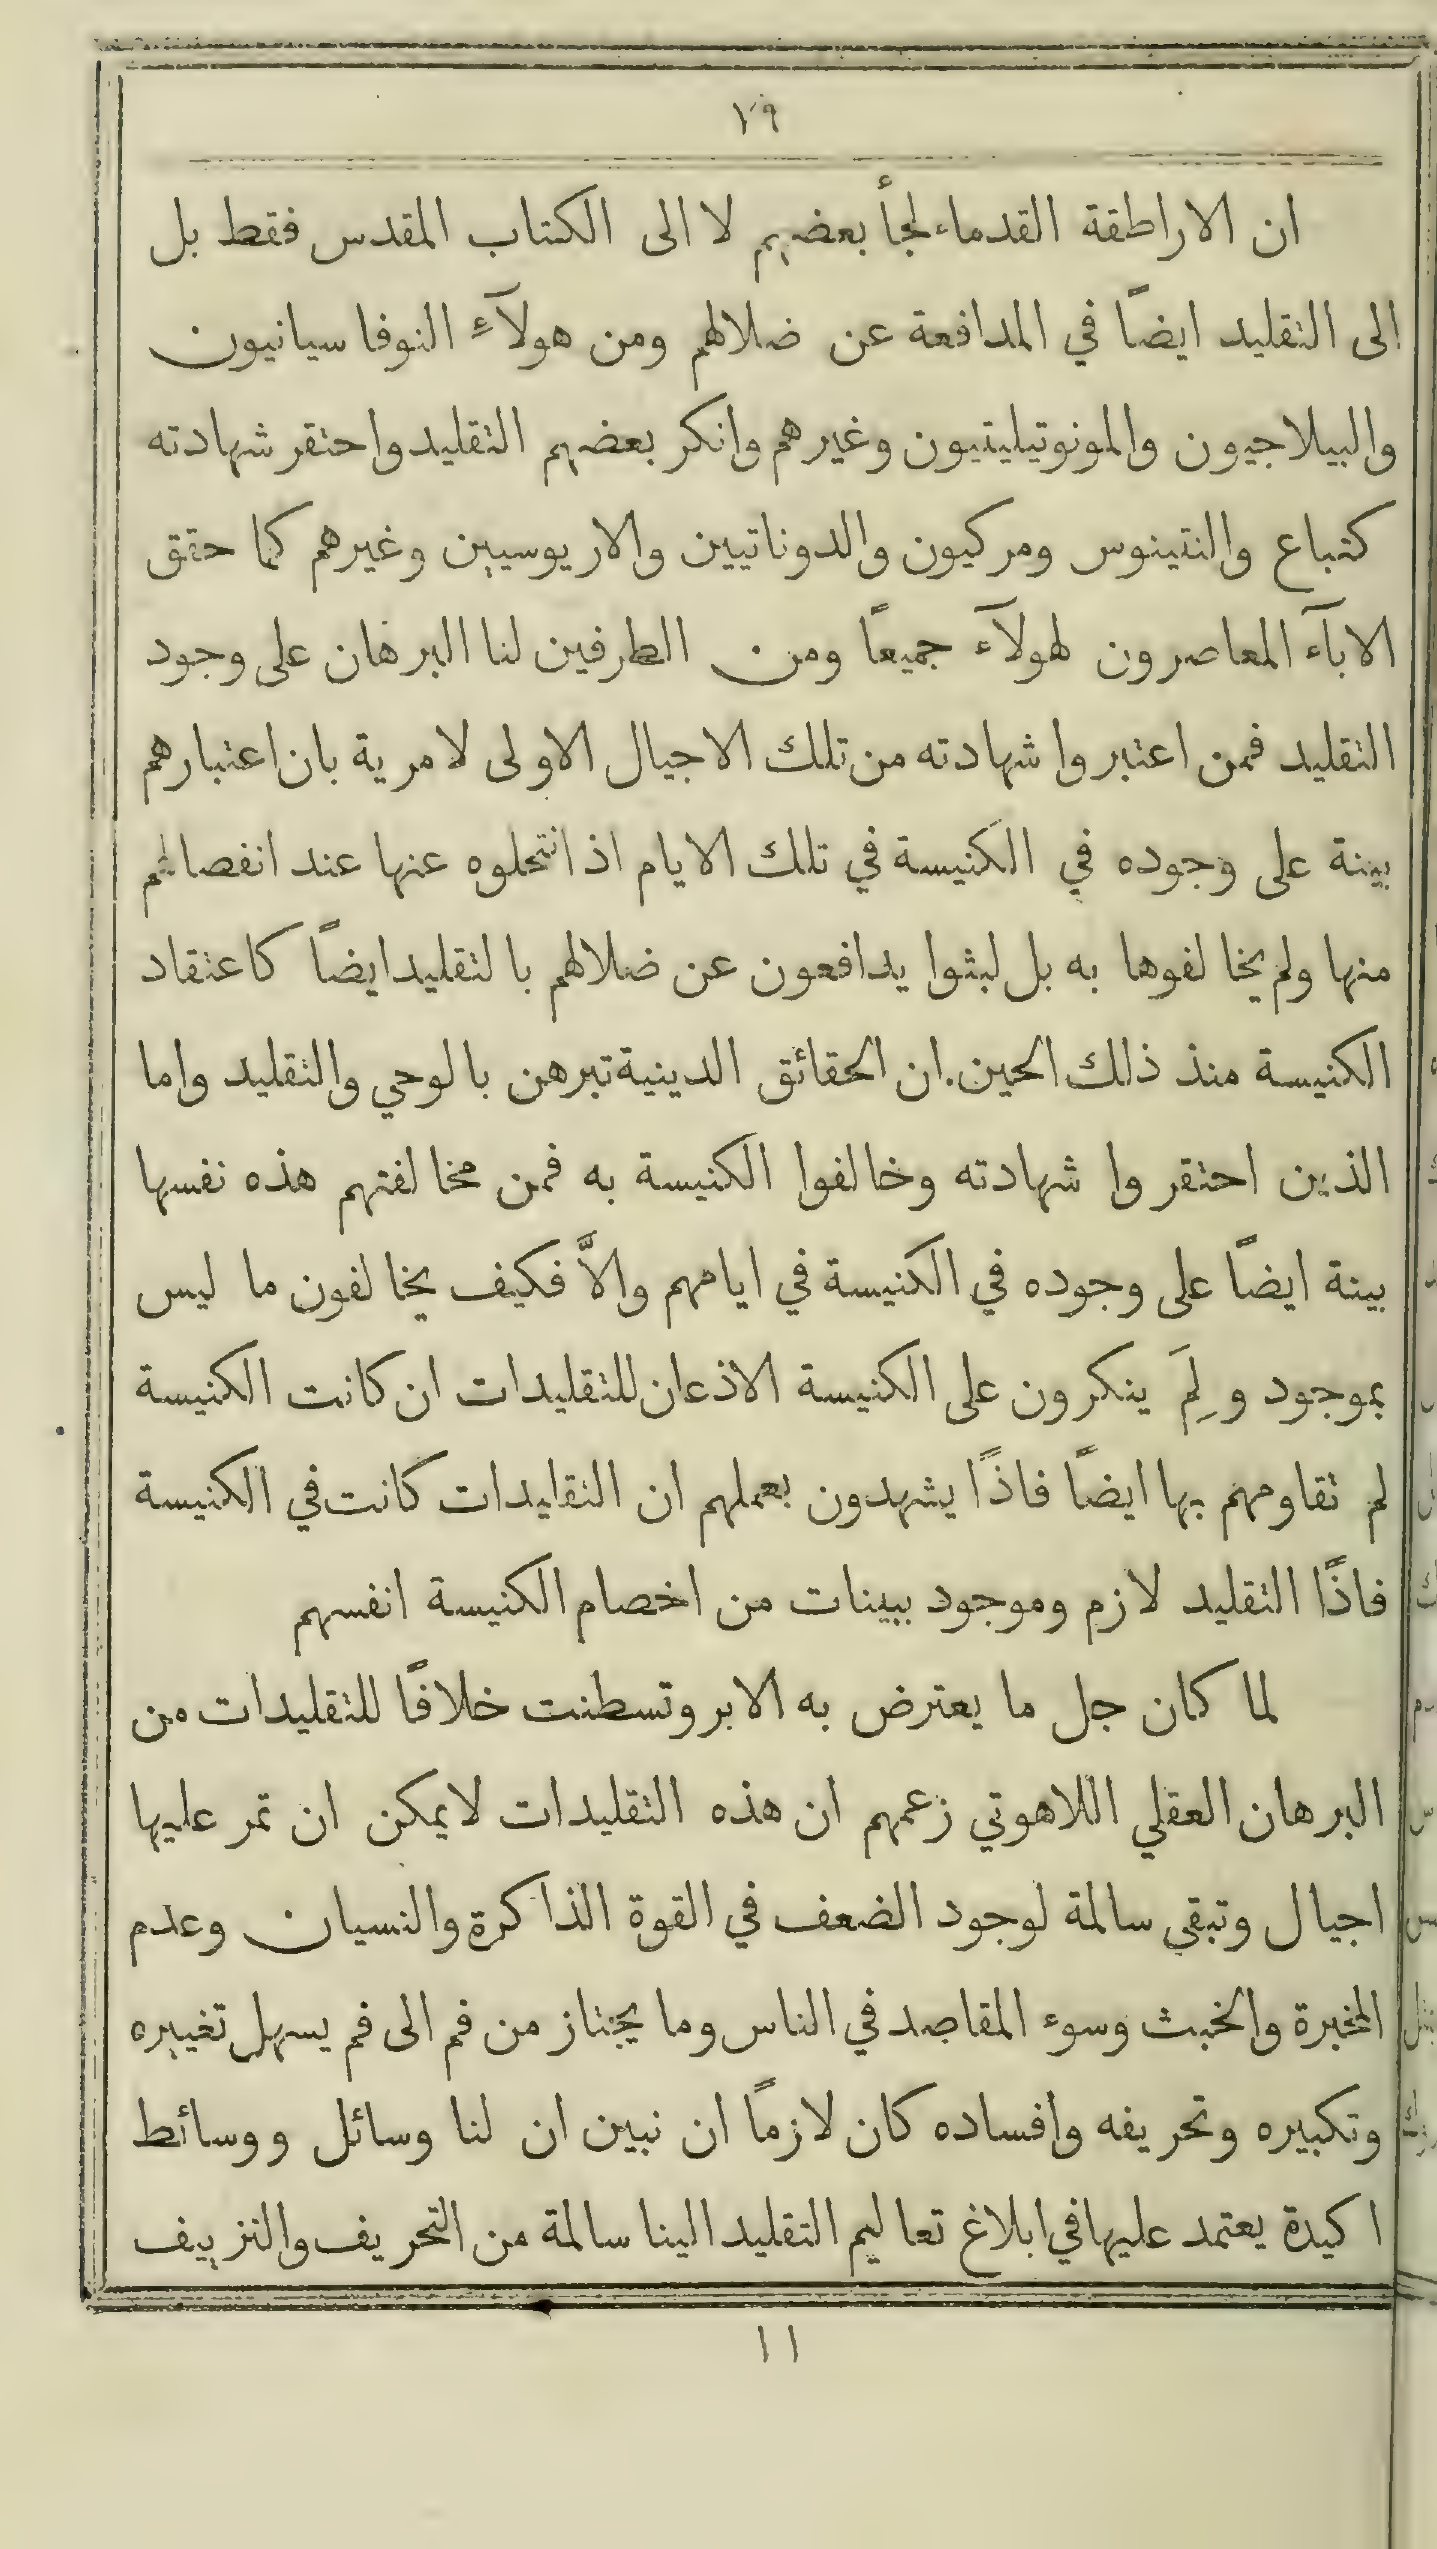 ٧٩
ان الاراطقة القدماء لجأ بعضهم لا الى الكتاب المقدس فقط بل
الى التقليد ايضاً في المدافعة عن ضلالهم ومن هولآءِ النوفاسيانيون
والبيلاجيون والمونوتيليتيون وغيرهم وانكر بعضهم التقليد واحتقر شهادته
كتباع والنتينوس ومركيون والدوناتيين والاريوسيين وغيرهم كما حقق
الابآء المعاصرون لهولآء جميعاً ومن الطرفين لنا البرهان على وجود
التقليد فمن اعتبروا شهادته من تلك الاجيال الاولى لا مرية بان اعتبارهم
بينة على وجوده في الكنيسة في تلك الايام اذ انتحلوه عنها عند انفصالهم
منها ولم يخالفوها به بل لبثوا يدافعون عن ضلالهم بالتقليد ايضاً كاعتقاد
الكنيسة منذ ذلك الحين. ان الحقائق الدينية تبرهن بالوحي والتقليد واما
الذين احتقروا شهادته وخالفوا الكنيسة به فمن مخالفتهم هذه نفسها
بينة ايضاً على وجوده في الكنيسة في ايامهم والاَّ فكيف يخالفون ما ليس
بموجود ولِمَ ينكرون على الكنيسة الاذعان للتقليدات ان كانت الكنيسة
لم تقاومهم بها ايضاً فاذًا يشهدون بعملهم ان التقليدات كانت في الكنيسة
فاذًا التقليد لازم وموجود ببينات من اخصام الكنيسة انفسهم
لما كان جل ما يعترض به الابروتسطنت خلافًا للتقليدات من
البرهان العقلي اللاهوتي زعمهم ان هذه التقليدات لا يمكن ان تمر عليها
اجيال وتبقى سالمة لوجود الضعف في القوة الذاكرة والنسيان وعدم
المخبرة والخبث وسوء المقاصد في الناس وما يجتاز من فم الى فم يسهل تغييره
وتكبيره وتحريفه وافساده كان لازماً ان نبين ان لنا وسائل ووسائط
اكيدة يعتمد عليها في ابلاغ تعاليم التقليد الينا سالمة من التحريف والتزييف
١١